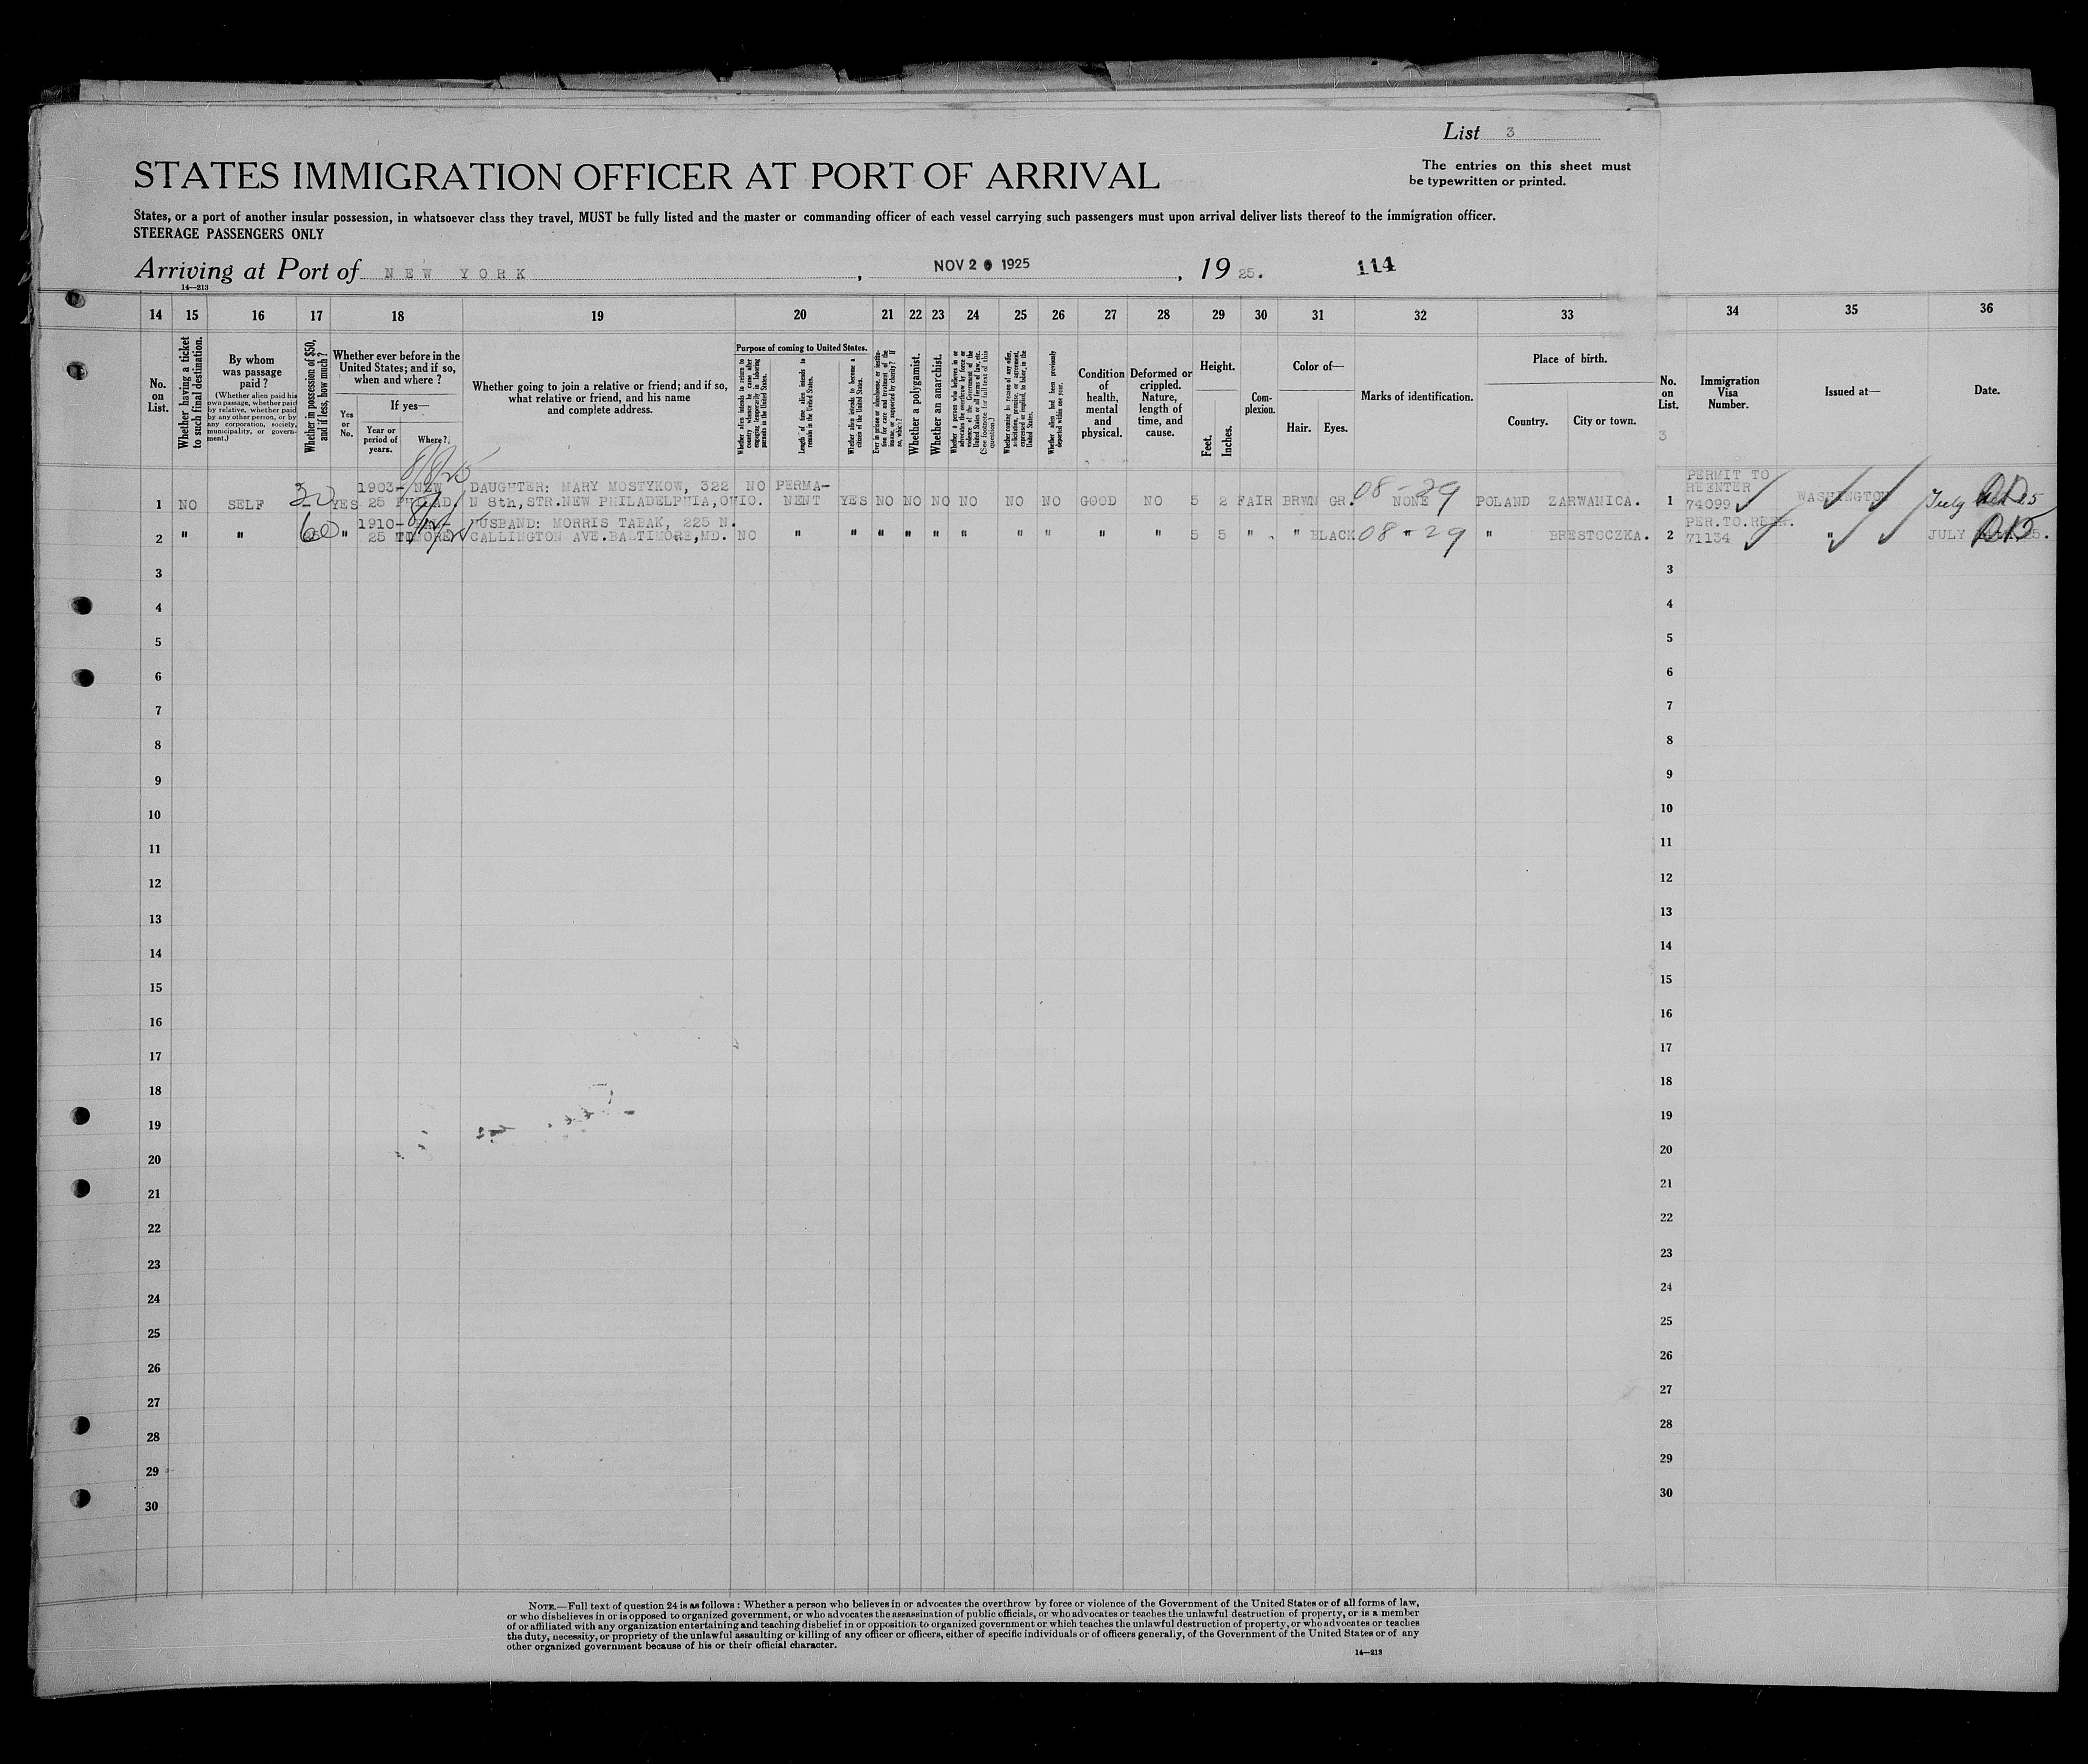 List 3
STATES IMMIGRATION OFFICER AT PORT OF ARRIVAL
The entries on this sheet must
be typewritten or printed.
States, or a port of another insular possession, in whatsoever class they travel, MUST be fully listed and the master or commanding officer of each vessel carrying such passengers must upon arrival deliver lists thereof to the immigration officer.
STEERAGE PASSENGERS ONLY
Arriving at Port of NEW YORK, NOV 20 1925, 19 25. 114
14—213
14 15 16 17 18 19 20 21 22 23 24 25 26 27 28 29 30 31 32 33 34 35 36
No.
on
List.
Whether having a ticket
to such final destination.
By whom
was passage
paid?
(Whether alien paid his
own passage, whether paid
by relative, whether paid
by any other person, or by
any corporation, society,
municipality, or govern-
ment.)
Whether in possession of $50,
and if less, how much?
Whether ever before in the
United States; and if so,
when and where?
Yes
or
No.
If yes—
Year or
period of
years.
Where?
Whether going to join a relative or friend; and if so,
what relative or friend, and his name
and complete address.
Purpose of coming to United States.
Whether alien intends to return to
country whence he came after
engaging temporarily in laboring
pursuits in the United States.
Length of time alien intends to
remain in the United States.
Whether alien intends to become a
citizen of the United States.
Ever in prison or almshouse, or institu-
tion for care and treatment of the
insane, or supported by charity? If
so, which?
Whether a polygamist.
Whether an anarchist.
Whether a person who believes in or
advocates the overthrow by force or
violence of the Government of the
United States or all forms of law, etc.
(See footnote for full text of this
question.)
Whether coming by reason of any offer,
solicitation, promise, or agreement,
expressed or implied, to labor in the
United States.
Whether alien had been previously
deported within one year.
Condition
of
health,
mental
and
physical.
Deformed or
crippled.
Nature,
length of
time, and
cause.
Height.
Feet.
Inches.
Com-
plexion.
Color of—
Hair. Eyes.
Marks of identification.
Place of birth.
Country. City or town.
No.
on
List.
3
Immigration
Visa
Number.
Issued at—
Date.
8/8/25
1903- NEW DAUGHTER: MARY MOSTYKOW, 322 NO PERMA- 08-29 PERMIT TO
REENTER
1 NO SELF YES 25 PHILAD. N 8th,STR.NEW PHILADELPHIA,OHIO. NENT YES NO NO NO NO NO NO GOOD NO 5 2 FAIR BRWN GR. NONE POLAND ZARWANICA. 1 74099 WASHINGTON July 25
1910- HUSBAND: MORRIS TABAK, 225 N. PER.TO.RDER.
2 " " 60 " 25 TIMORE CALLINGTON AVE.BALTIMORE,MD. NO " " " " " " " " " " 5 5 " " BLACK 08 " 29 " BRESTOCZKA. 2 71134 " JULY 25.
3 3
4 4
5 5
6 6
7 7
8 8
9 9
10 10
11 11
12 12
13 13
14 14
15 15
16 16
17 17
18 18
19 19
20 20
21 21
22 22
23 23
24 24
25 25
26 26
27 27
28 28
29 29
30 30
NOTE.—Full text of question 24 is as follows: Whether a person who believes in or advocates the overthrow by force or violence of the Government of the United States or of all forms of law,
or who disbelieves in or is opposed to organized government, or who advocates the assassination of public officials, or who advocates or teaches the unlawful destruction of property, or is a member
of or affiliated with any organization entertaining and teaching disbelief in or opposition to organized government or which teaches the unlawful destruction of property, or who advocates or teaches
the duty, necessity, or propriety of the unlawful assaulting or killing of any officer or officers, either of specific individuals or of officers generally, of the Government of the United States or of any
other organized government because of his or their official character.
14—213